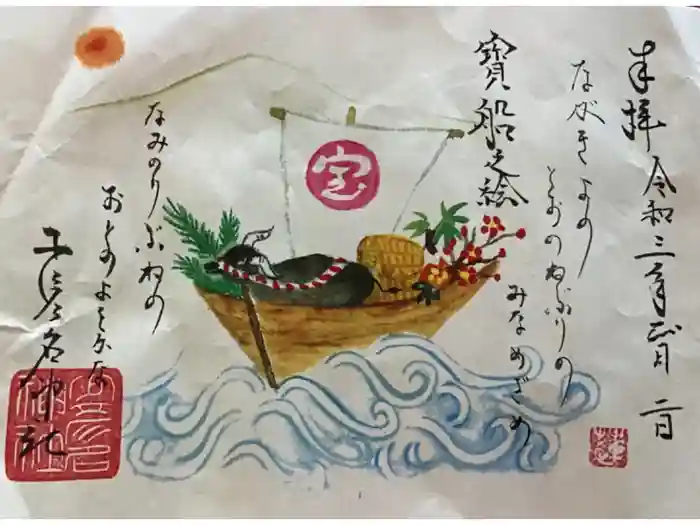 奉拝 令和三年正月二日
ながきよの
とおのねぶりの
みなめざめ
寶船之絵
宝
なみのりぶねの
おとのよきかな
神社